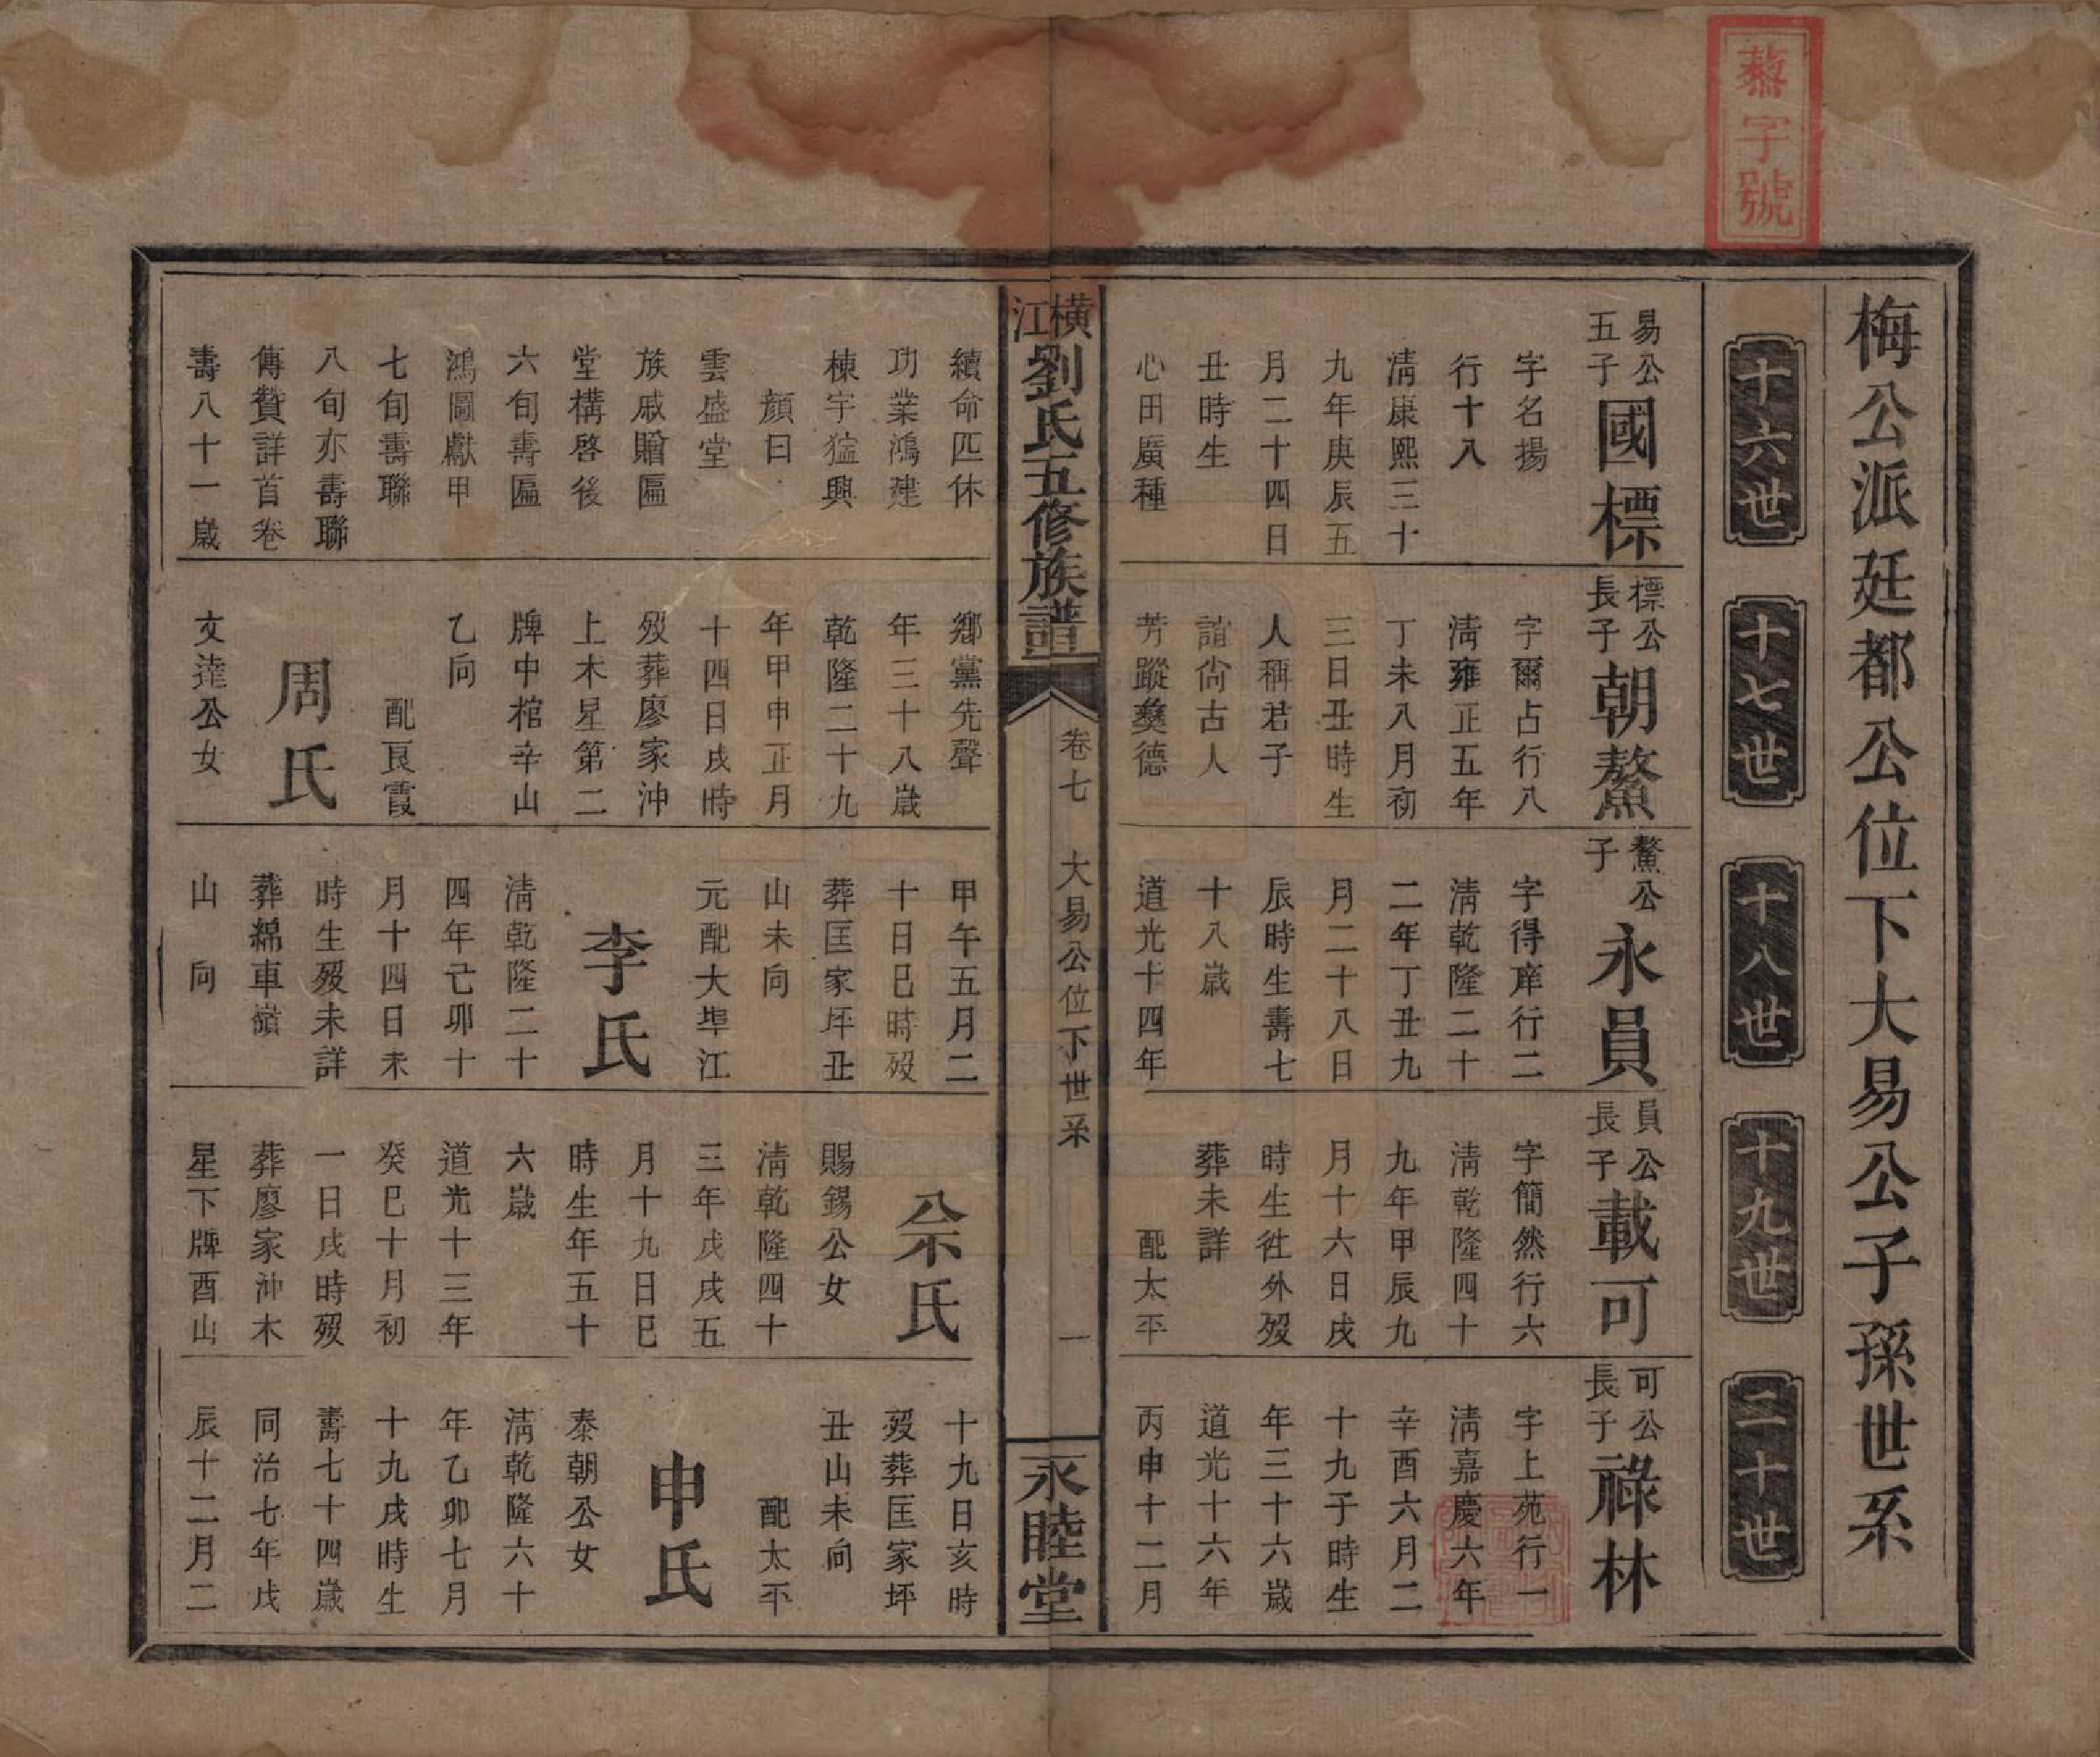 藜字號
梅公派廷都公位下大易公子孫世系
十六世
十七世
十八世
十九世
二十世
易公
五子
國標
字名揚
行十八
清康熙三十
九年庚辰五
月二十四日
丑時生
心田廣種
標公
長子
朝鰲
字爾占行八
清雍正五年
丁未八月初
三日丑時生
人稱君子
誼尚古人
芳蹤彝德
鰲公
子
永員
字得庠行二
清乾隆二十
二年丁丑九
月二十八日
辰時生壽七
十八歲
道光十四年
員公
長子
載可
字簡然行六
清乾隆四十
九年甲辰九
月十六日戌
時生徃外歿
葬未詳
配太平
可公
長子
祿林
字上苑行一
清嘉慶六年
辛酉六月二
十九子時生
年三十六歲
道光十六年
丙申十二月
橫江劉氏五修族譜
卷七
大易公位下世系
一
永睦堂
續命匹休
功業鴻建
棟宇猛興
顏曰
雲盛堂
族戚贈匾
堂構啓後
六旬壽匾
鴻圖獻甲
七旬壽聯
八旬亦壽聯
傳贊詳首卷
壽八十一歲
鄉黨先聲
年三十八歲
乾隆二十九
年甲申正月
十四日戌時
歿葬廖家沖
上木星第二
牌中棺辛山
乙向
配良霞
周氏
文達公女
甲午五月二
十日巳時歿
葬匡家坪丑
山未向
元配大埠江
李氏
清乾隆二十
四年己卯十
月十四日未
時生歿未詳
葬綿車嶺
山向
佘氏
賜錫公女
清乾隆四十
三年戊戌五
月十九日巳
時生年五十
六歲
道光十三年
癸巳十月初
一日戌時歿
葬廖家沖木
星下牌酉山
十九日亥時
歿葬匡家坪
丑山未向
配太平
申氏
泰朝公女
清乾隆六十
年乙卯七月
十九戌時生
壽七十四歲
同治七年戊
辰十二月二